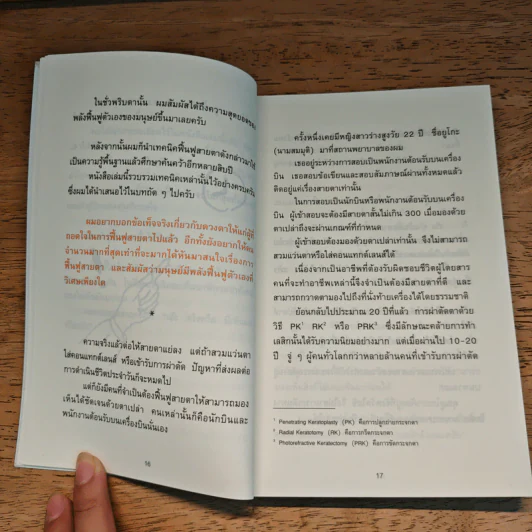 ในชั่วพริบตานั้น ผมสัมผัสได้ถึงความสุดยอดของ
พลังฟื้นฟูตัวเองของมนุษย์ขึ้นมาเลยครับ
หลังจากนั้นผมก็นำเทคนิคฟื้นฟูสายตาดังกล่าวมาใช้
เป็นความรู้พื้นฐานแล้วศึกษาค้นคว้าอีกหลายสิบปี
หนังสือเล่มนี้รวบรวมเทคนิคเหล่านั้นไว้อย่างครบครัน
ซึ่งผมได้นำเสนอไว้ในบทถัด ๆ ไปครับ
ผมอยากบอกข้อเท็จจริงเกี่ยวกับดวงตาให้แก่ผู้ที่
ถอดใจในการฟื้นฟูสายตาไปแล้ว อีกทั้งยังอยากให้คน
จำนวนมากที่สุดเท่าที่จะมากได้หันมาสนใจเรื่องการ
ฟื้นฟูสายตา และสัมผัสว่ามนุษย์มีพลังฟื้นฟูตัวเองที่
วิเศษเพียงใด
ความจริงแล้วต่อให้สายตาแย่ลง แต่ถ้าสวมแว่นตา
ใส่คอนแทกต์เลนส์ หรือเข้ารับการผ่าตัด ปัญหาที่ส่งผลต่อ
การดำเนินชีวิตประจำวันก็จะหมดไป
แต่ก็ยังมีคนที่จำเป็นต้องฟื้นฟูสายตาให้สามารถมอง
เห็นได้ชัดเจนด้วยตาเปล่า คนเหล่านั้นก็คือนักบินและ
พนักงานต้อนรับบนเครื่องบินนั่นเอง
16
ครั้งหนึ่งเคยมีหญิงสาวร่างสูงวัย 22 ปี ชื่อยูโกะ
(นามสมมุติ) มาที่สถานพยาบาลของผม
เธออยู่ระหว่างการสอบเป็นพนักงานต้อนรับบนเครื่อง
บิน เธอสอบข้อเขียนและสอบสัมภาษณ์ผ่านทั้งหมดแล้ว
ติดอยู่แค่เรื่องสายตาเท่านั้น
ในการสอบเป็นนักบินหรือพนักงานต้อนรับบนเครื่อง
บิน ผู้เข้าสอบจะต้องมีสายตาสั้นไม่เกิน 300 เมื่อมองด้วย
ตาเปล่าถึงจะผ่านเกณฑ์ที่กำหนด
ผู้เข้าสอบต้องมองด้วยตาเปล่าเท่านั้น จึงไม่สามารถ
สวมแว่นตาหรือใส่คอนแทกต์เลนส์ได้
เนื่องจากเป็นอาชีพที่ต้องรับผิดชอบชีวิตผู้โดยสาร
คนที่จะทำอาชีพเหล่านี้จึงจำเป็นต้องมีสายตาที่ดี และ
สามารถกวาดตามองไปถึงที่นั่งท้ายเครื่องได้โดยธรรมชาติ
ย้อนกลับไปประมาณ 20 ปีที่แล้ว การผ่าตัดตาด้วย
วิธี PK¹ RK² หรือ PRK³ ซึ่งมีลักษณะคล้ายการทำ
เลสิกนั้นได้รับความนิยมอย่างมาก แต่เมื่อผ่านไป 10-20
ปี จู่ ๆ ผู้คนทั่วโลกกว่าหลายล้านคนที่เข้ารับการผ่าตัด
¹ Penetrating Keratoplasty (PK) คือการปลูกถ่ายกระจกตา
² Radial Keratotomy (RK) คือการกรีดกระจกตา
³ Photorefractive Keratectomy (PRK) คือการขัดกระจกตา
17